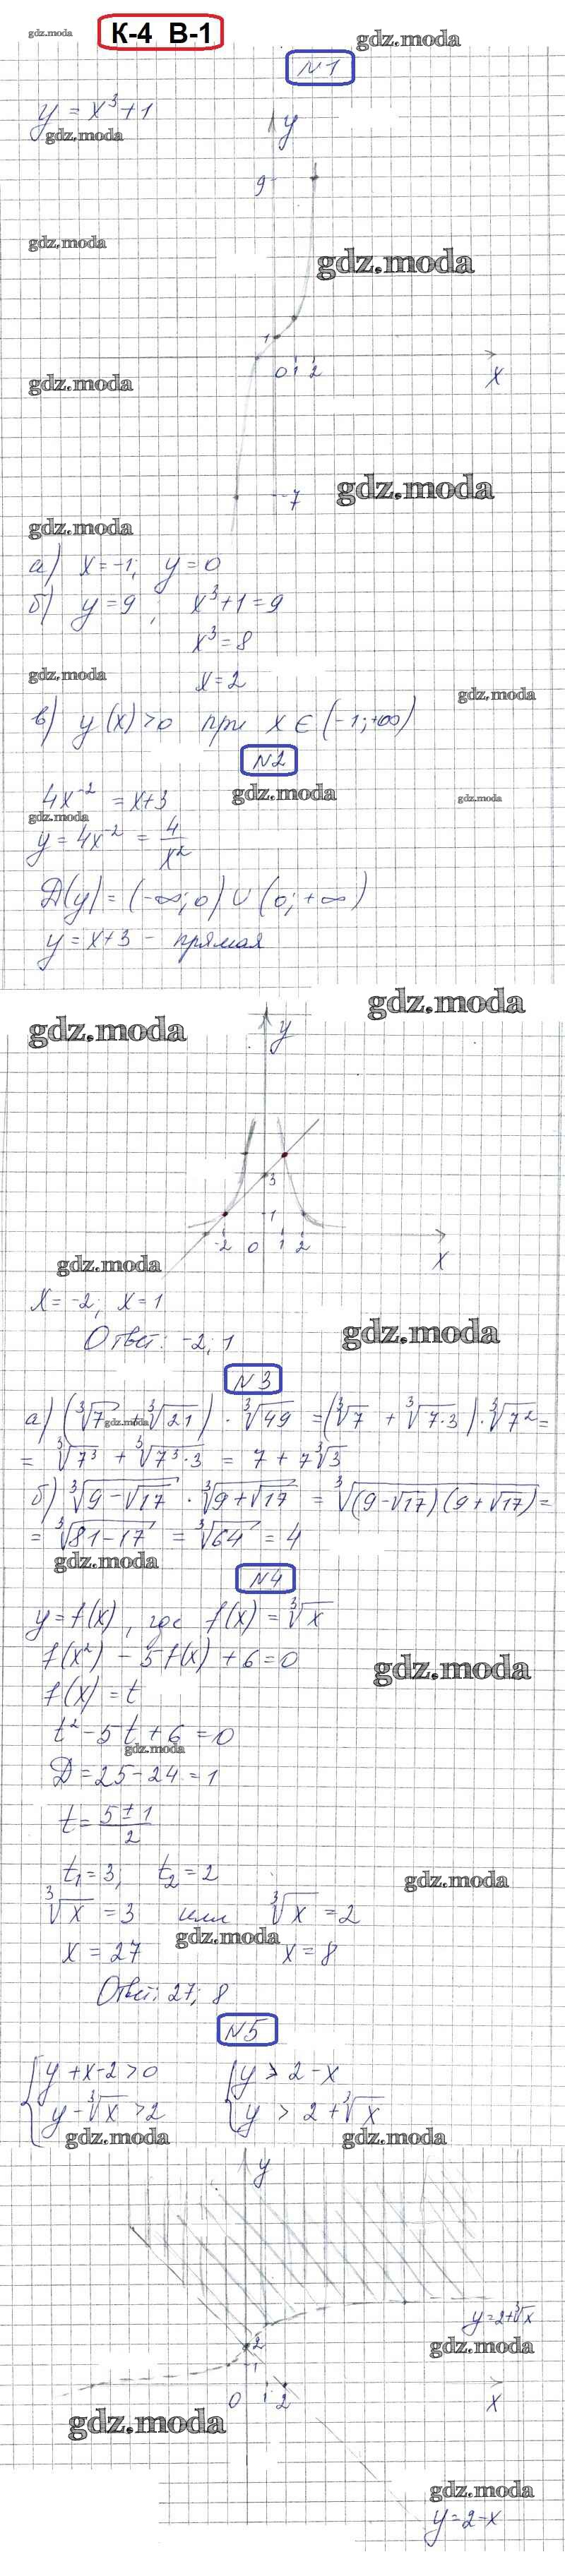 gdz.moda
К-4 В-1
gdz.moda
N1
y = x³+1
gdz.moda
y
9
gdz.moda
gdz.moda
1
0 1 2
x
gdz.moda
-7
gdz.moda
gdz.moda
а) x = -1; y = 0
б) y = 9; x³+1 = 9
x³ = 8
gdz.moda
x = 2
gdz.moda
в) y(x) > 0 при x ∈ (-1; +∞)
N2
4x⁻² = x+3
gdz.moda
gdz.moda
gdz.moda
y = 4x⁻² = 4/x²
D(y) = (-∞; 0) ∪ (0; +∞)
y = x+3 - прямая
gdz.moda
gdz.moda
y
3
1
-2 0 1 2
x
gdz.moda
x = -2; x = 1
gdz.moda
Ответ: -2; 1
N3
а) (∛7 + ∛21) · ∛49 = (∛7 + ∛7·3) · ∛7² =
gdz.moda
= ∛7³ + ∛7³·3 = 7 + 7∛3
б) ∛9-√17 · ∛9+√17 = ∛(9-√17)(9+√17) =
= ∛81-17 = ∛64 = 4
gdz.moda
N4
y = f(x), где f(x) = ∛x
f(x²) - 5f(x) + 6 = 0
gdz.moda
f(x) = t
t² - 5t + 6 = 0
gdz.moda
D = 25 - 24 = 1
t = 5±1/2
t₁ = 3; t₂ = 2
gdz.moda
∛x = 3 или ∛x = 2
gdz.moda
x = 27 x = 8
Ответ: 27; 8
N5
{ y + x - 2 > 0 { y > 2 - x
y - ∛x > 2 y > 2 + ∛x
gdz.moda
gdz.moda
y
y = 2 + ∛x
2
gdz.moda
1
0 1 2
x
gdz.moda
gdz.moda
y = 2 - x